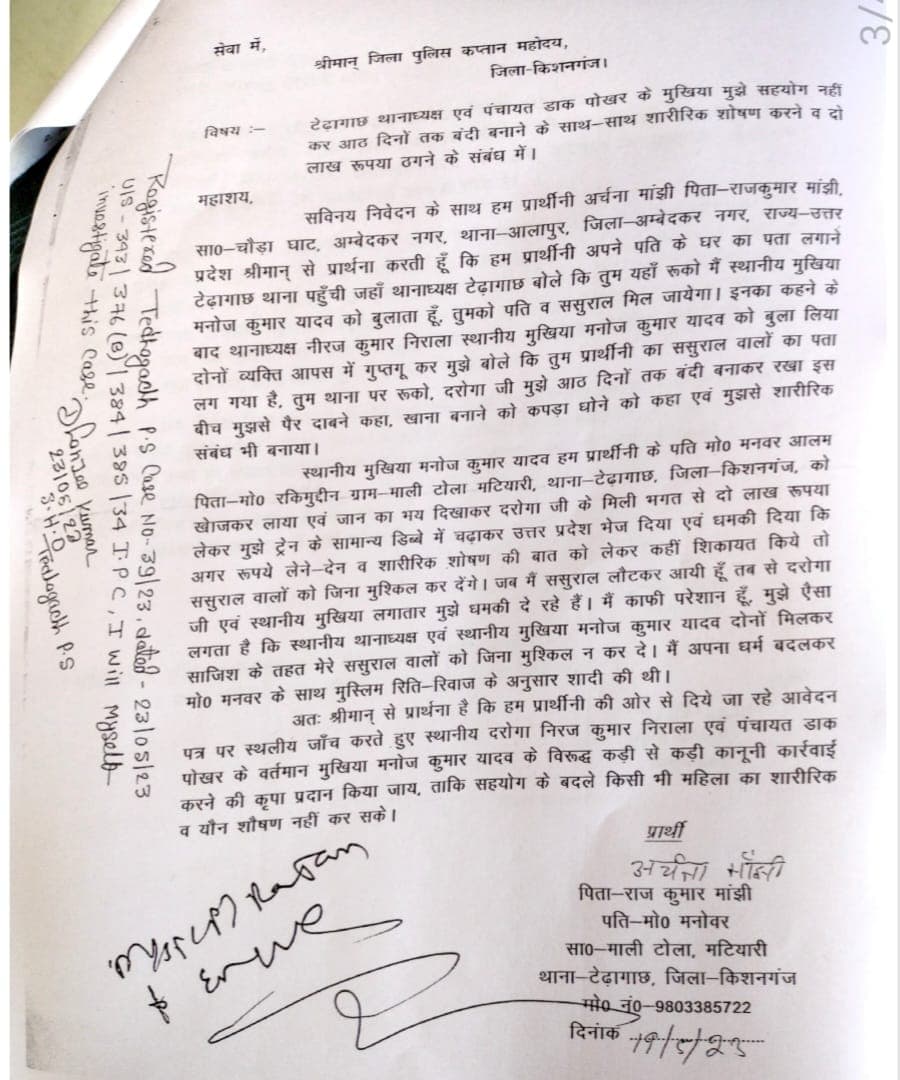 3/
सेवा में,
श्रीमान् जिला पुलिस कप्तान महोदय,
जिला-किशनगंज।
विषय :-
टेढ़ागाछ थानाध्यक्ष एवं पंचायत डाक पोखर के मुखिया मुझे सहयोग नहीं
कर आठ दिनों तक बंदी बनाने के साथ-साथ शारीरिक शोषण करने व दो
लाख रूपया ठगने के संबंध में।
महाशय,
सविनय निवेदन के साथ हम प्रार्थीनी अर्चना मांझी पिता-राजकुमार मांझी,
सा०-चौड़ा घाट, अम्बेदकर नगर, थाना-आलापुर, जिला-अम्बेदकर नगर, राज्य-उत्तर
प्रदेश श्रीमान् से प्रार्थना करती हूँ कि हम प्रार्थीनी अपने पति के घर का पता लगाने
टेढ़ागाछ थाना पहुँची जहाँ थानाध्यक्ष टेढ़ागाछ बोले कि तुम यहाँ रूको मैं स्थानीय मुखिया
मनोज कुमार यादव को बुलाता हूँ, तुमको पति व ससुराल मिल जायेगा। इनका कहने के
बाद थानाध्यक्ष नीरज कुमार निराला स्थानीय मुखिया मनोज कुमार यादव को बुला लिया
दोनों व्यक्ति आपस में गुप्तगू कर मुझे बोले कि तुम प्रार्थीनी का ससुराल वालों का पता
लग गया है, तुम थाना पर रूको, दरोगा जी मुझे आठ दिनों तक बंदी बनाकर रखा इस
बीच मुझसे पैर दाबने कहा, खाना बनाने को कपड़ा धोने को कहा एवं मुझसे शारीरिक
संबंध भी बनाया।
स्थानीय मुखिया मनोज कुमार यादव हम प्रार्थीनी के पति मो० मनवर आलम
पिता-मो० रकिमुद्दीन ग्राम-माली टोला मटियारी, थाना-टेढ़ागाछ, जिला-किशनगंज, को
खोजकर लाया एवं जान का भय दिखाकर दरोगा जी के मिली भगत से दो लाख रूपया
लेकर मुझे ट्रेन के सामान्य डिब्बे में चढ़ाकर उत्तर प्रदेश भेज दिया एवं धमकी दिया कि
अगर रूपये लेने-देन व शारीरिक शोषण की बात को लेकर कहीं शिकायत किये तो
ससुराल वालों को जिना मुश्किल कर देंगे। जब मैं ससुराल लौटकर आयी हूँ तब से दरोगा
जी एवं स्थानीय मुखिया लगातार मुझे धमकी दे रहे हैं। मैं काफी परेशान हूँ, मुझे ऐसा
लगता है कि स्थानीय थानाध्यक्ष एवं स्थानीय मुखिया मनोज कुमार यादव दोनों मिलकर
साजिश के तहत मेरे ससुराल वालों को जिना मुश्किल न कर दे। मैं अपना धर्म बदलकर
मो० मनवर के साथ मुस्लिम रिति-रिवाज के अनुसार शादी की थी।
अतः श्रीमान् से प्रार्थना है कि हम प्रार्थीनी की ओर से दिये जा रहे आवेदन
पत्र पर स्थलीय जाँच करते हुए स्थानीय दरोगा निरज कुमार निराला एवं पंचायत डाक
पोखर के वर्तमान मुखिया मनोज कुमार यादव के विरूद्ध कड़ी से कड़ी कानूनी कार्रवाई
करने की कृपा प्रदान किया जाय, ताकि सहयोग के बदले किसी भी महिला का शारीरिक
व यौन शौषण नहीं कर सके।
प्रार्थी
अर्चना माँझी
पिता-राज कुमार मांझी
पति-मो० मनोवर
सा०-माली टोला, मटियारी
थाना-टेढ़ागाछ, जिला-किशनगंज
मो० नं०-9803385722
दिनांक 19/5/23
Registered Tedhagachh P.S Case No-39/23, dated- 23/05/23
U/S-343/376(B)/384/385/34 I.P.C, I will Myself
investigate this case.
Kumar
23/05/23
S.H.O Tedhagachh P.S